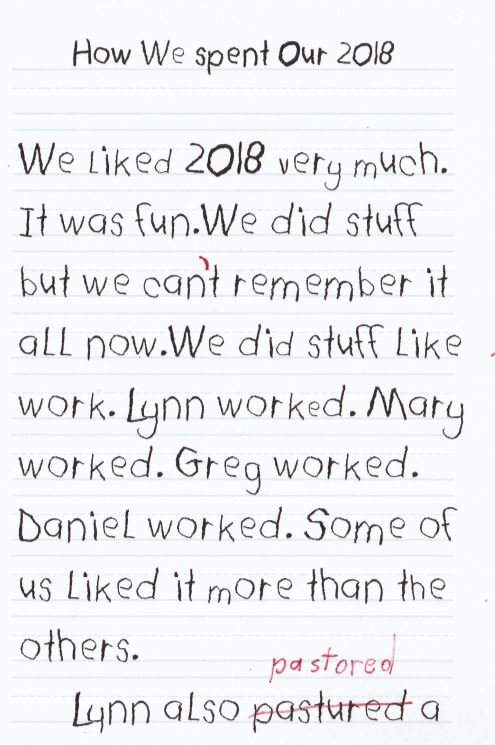 How We spent Our 2018
We liked 2018 very much.
It was fun. We did stuff
but we can't remember it
all now. We did stuff like
work. Lynn worked. Mary
worked. Greg worked.
Daniel worked. Some of
us liked it more than the
others.
pastored
Lynn also pastured a